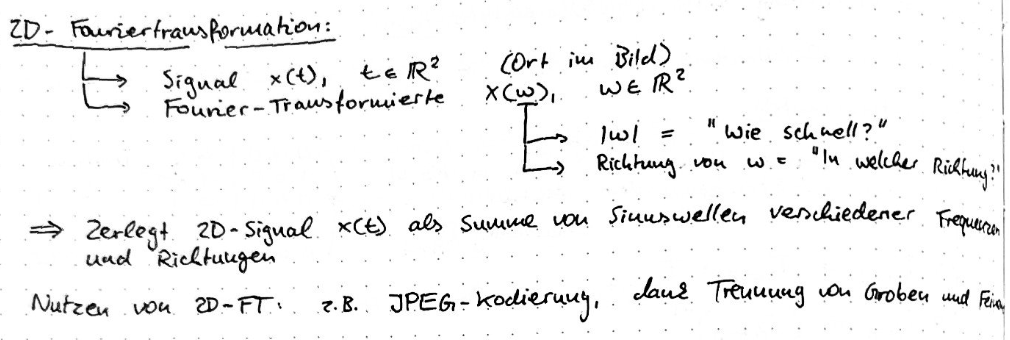 2D-Fouriertransformation:
Signal x(t), t ∈ ℝ² (Ort im Bild)
Fourier-Transformierte X(w), w ∈ ℝ²
|w| = "Wie schnell?"
Richtung von w = "In welcher Richtung?"
⇒ Zerlegt 2D-Signal x(t) als Summe von Sinuswellen verschiedener Frequenzen
und Richtungen
Nutzen von 2D-FT: z.B. JPEG-Kodierung, dank Trennung von Groben und